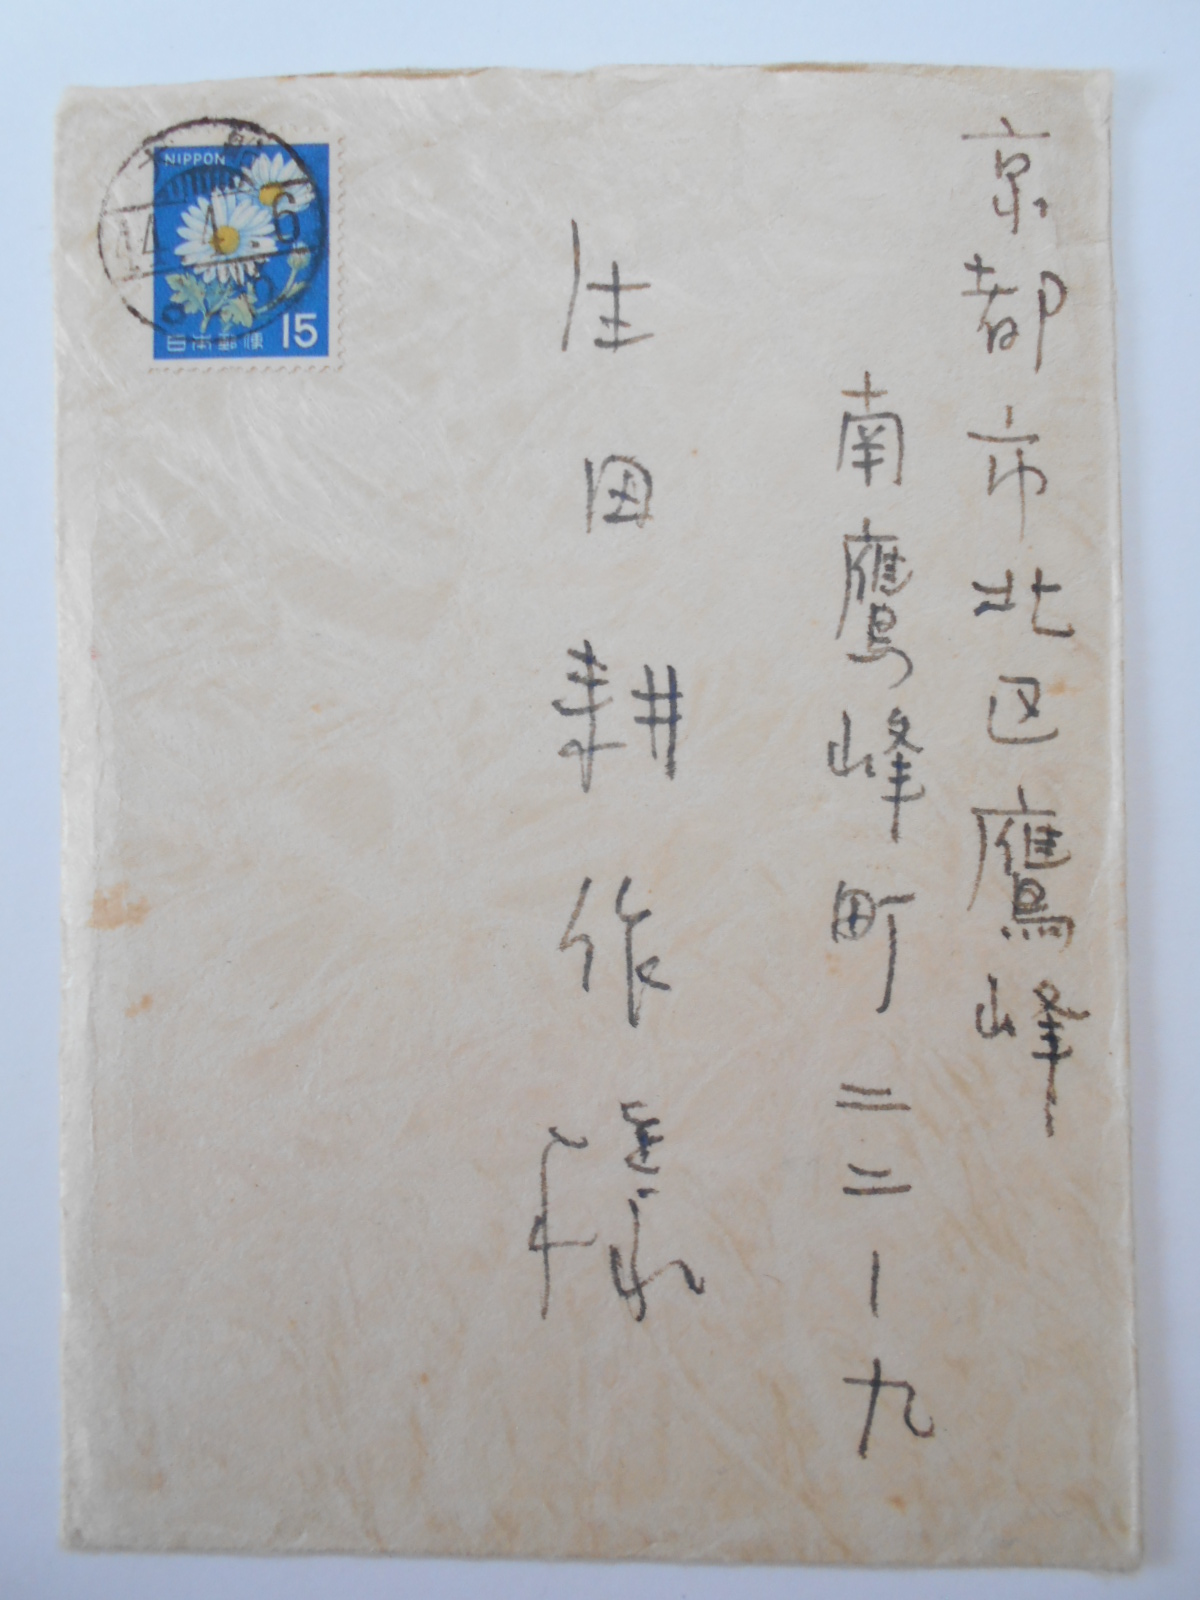 京都市北区鷹峰
南鷹峰町二二ー九
生田耕作様
NIPPON
44.4.6
15
日本郵便